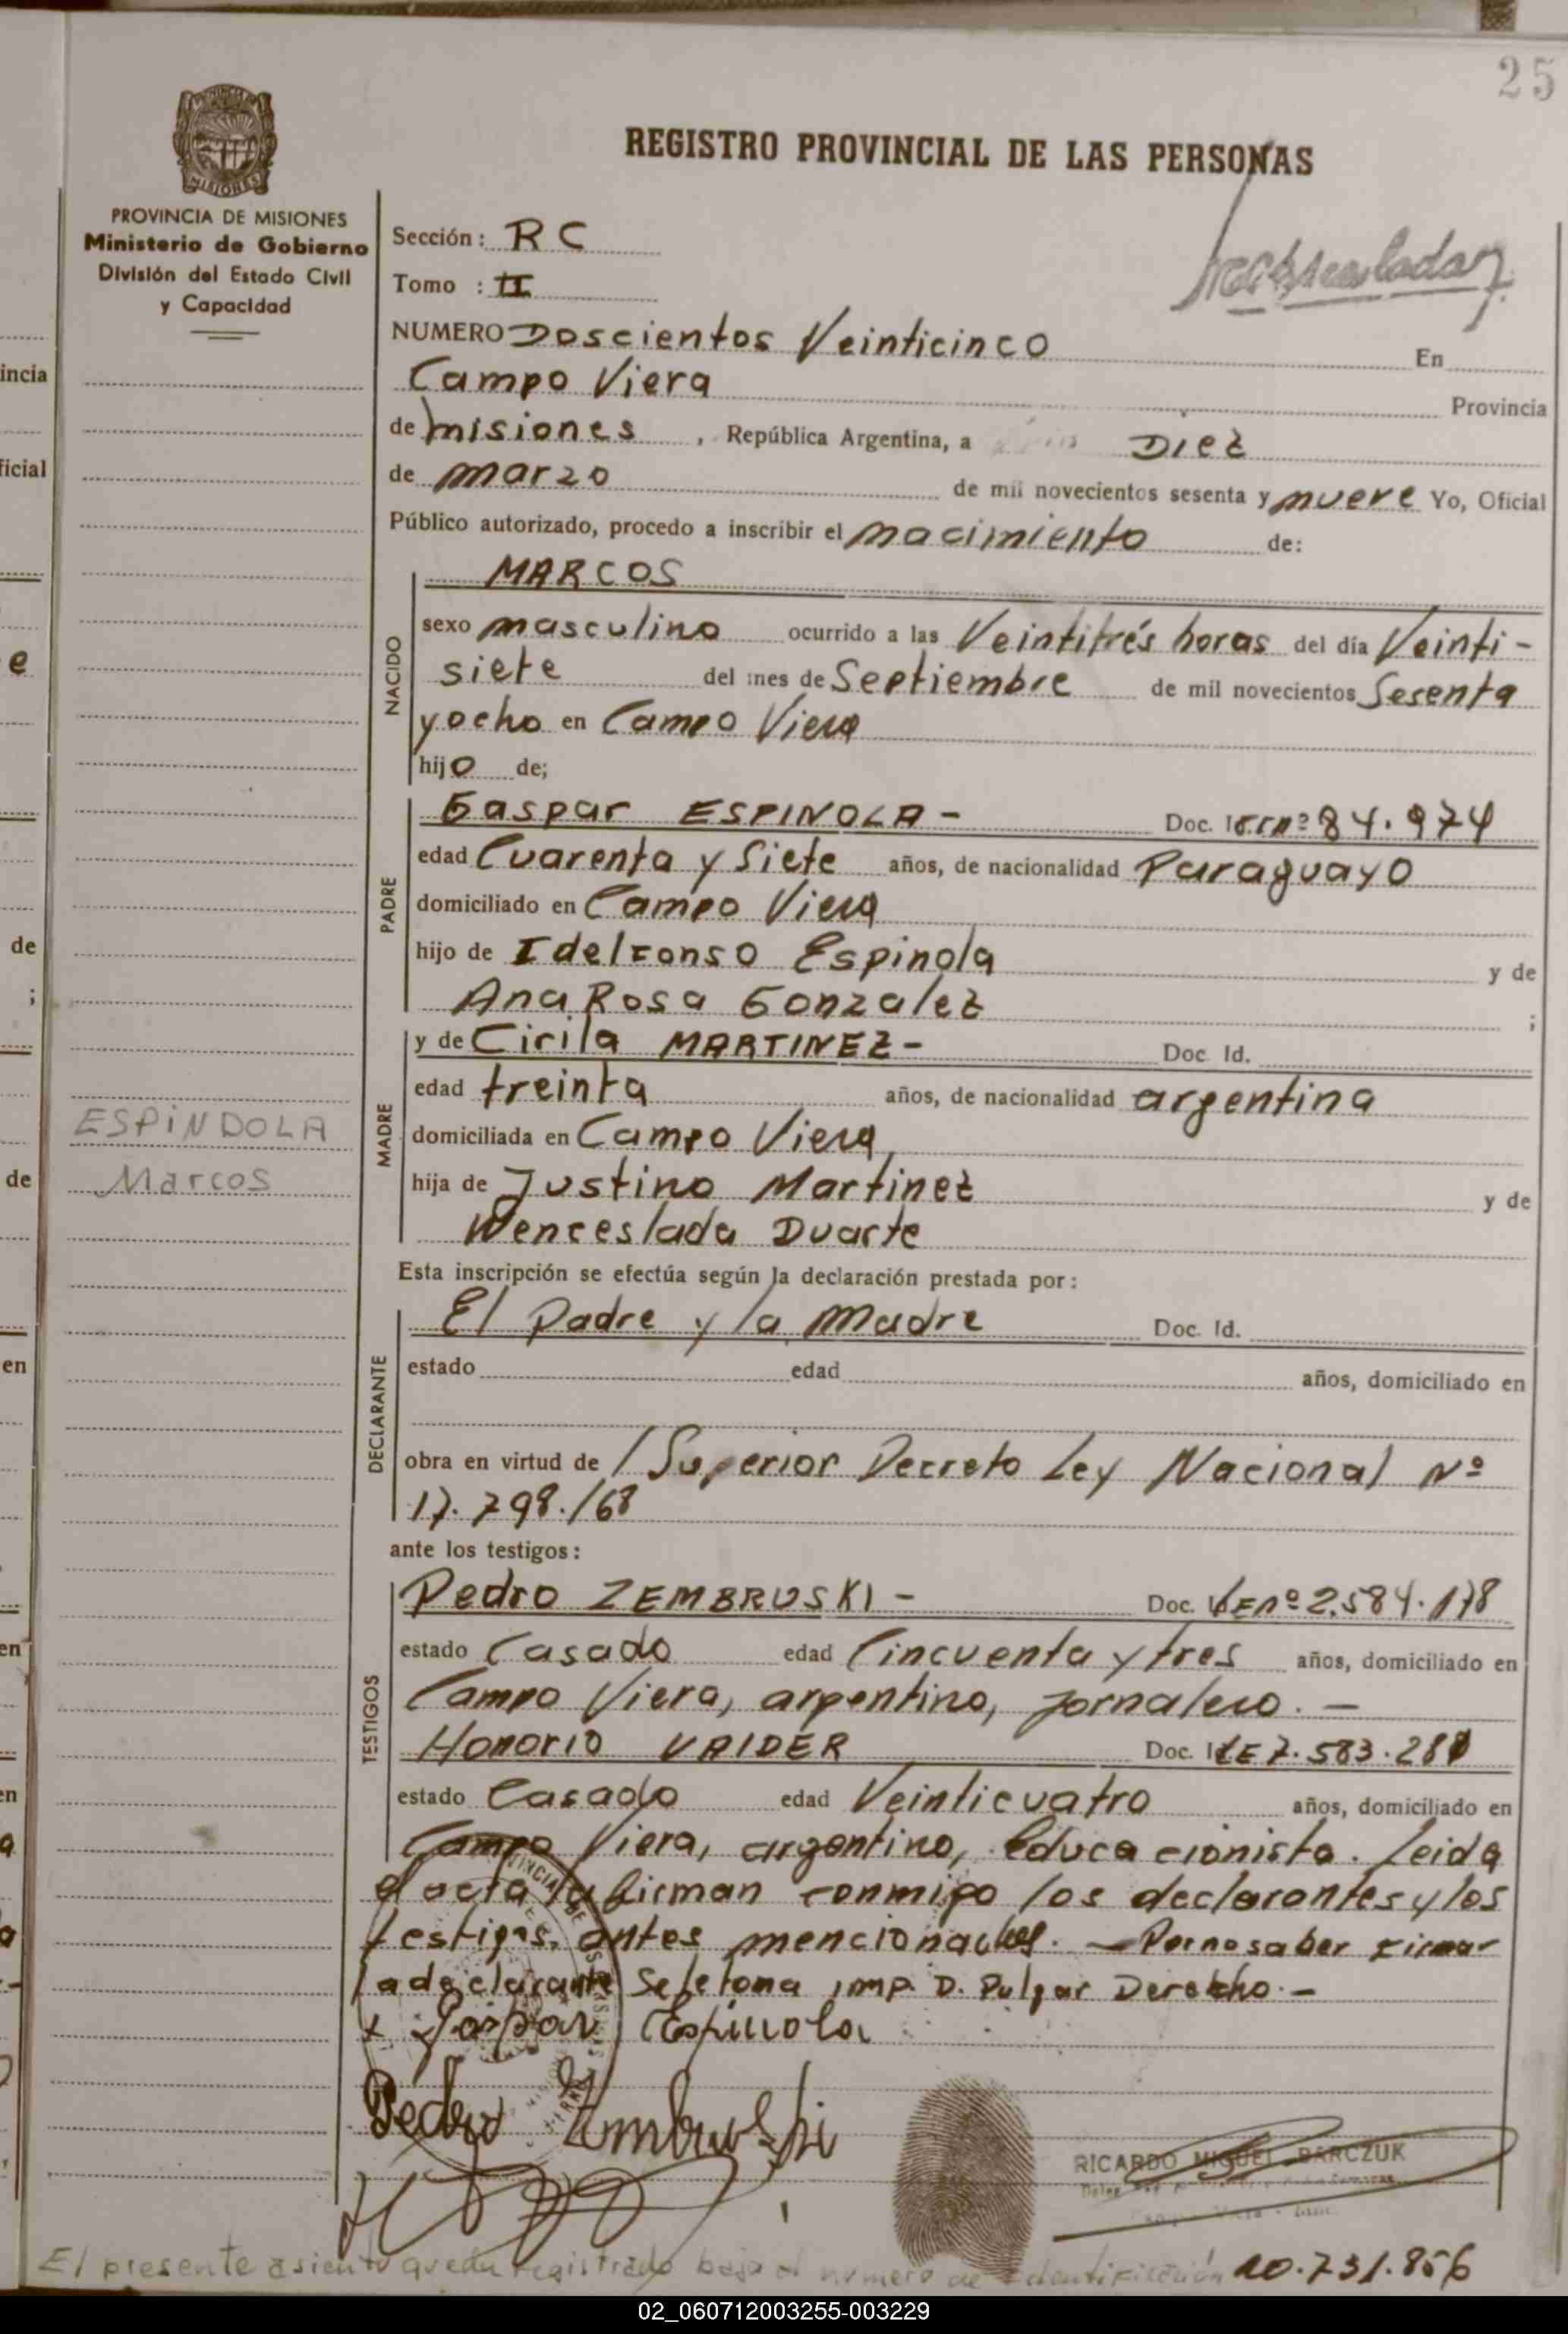 25
REGISTRO PROVINCIAL DE LAS PERSONAS
MISIONES
PROVINCIA DE MISIONES
Ministerio de Gobierno
División del Estado Civil
y Capacidad
Sección: RC
Tomo : II
NUMERO Doscientos Veinticinco En
Campo Viera Provincia
de misiones, República Argentina, a Diez
de marzo de mil novecientos sesenta y nueve Yo, Oficial
Público autorizado, procedo a inscribir el nacimiento de:
MARCOS
NACIDO
sexo masculino ocurrido a las Veintitrés horas del día Veinti-
siete del mes de Septiembre de mil novecientos Sesenta
y ocho en Campo Viera
hijo de;
PADRE
Gaspar ESPINOLA - Doc. 84.974
edad Cuarenta y Siete años, de nacionalidad Paraguayo
domiciliado en Campo Viera
hijo de Idelfonso Espinola y de
Ana Rosa Gonzalez ;
MADRE
y de Cirila MARTINEZ - Doc. Id.
edad treinta años, de nacionalidad argentina
domiciliada en Campo Viera
hija de Justino Martinez y de
Wenceslada Duarte
ESPINDOLA
Marcos
Esta inscripción se efectúa según la declaración prestada por:
DECLARANTE
El Padre y la Madre Doc. Id.
estado edad años, domiciliado en
obra en virtud de / Superior Decreto Ley Nacional Nº
17.798./68
ante los testigos:
TESTIGOS
Pedro ZEMBRUSKI - Doc. LE nº 2.584.178
estado Casado edad Cincuenta y tres años, domiciliado en
Campo Viera, argentino, jornalero. -
Honorio VAIDER Doc. LE 7.583.28
estado Casado edad Veinticuatro años, domiciliado en
Campo Viera, argentino, Educacionista. Leida
el acta la firman conmigo los declarantes y los
testigos antes mencionados. - Por no saber firmar
la declarante se le toma imp. D. Pulgar Derecho. -
x Gaspar Espinola
Pedro Zembruski
RICARDO MIGUEL BARCZUK
El presente asiento queda registrado bajo el numero de identificación 20.731.856
02_060712003255-003229